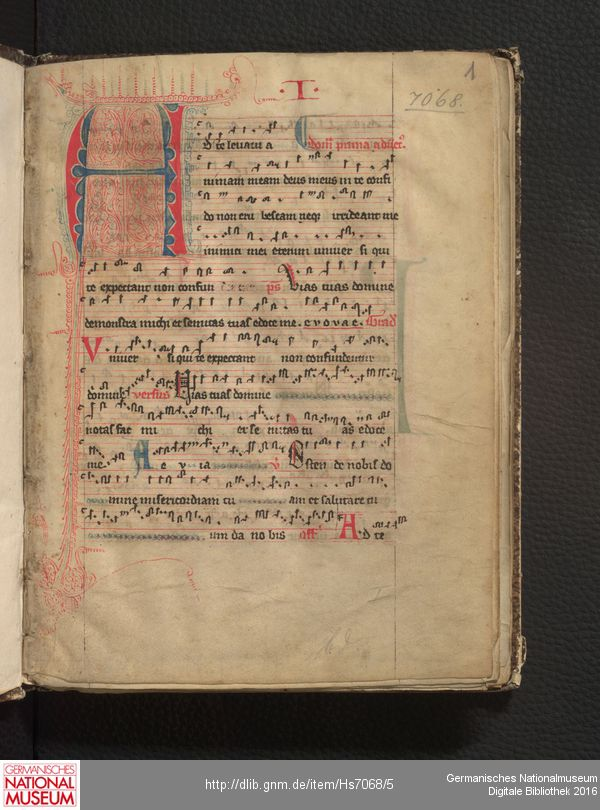 ·I·
1
7068.
AD te levavi a Dom̄ prima adūet᷑.
nimam meam deus meus in te confi
do non eru bescam neqȝ irrideant me
inimici mei etenim univer si qui
te expectant non confun ps Vias tuas domine
demonstra michi et semitas tuas edoce me. e v o v a e. Grad̄
Univer si qui te expectant non confundentur
domine versus Vias tuas domine
notas fac mi chi et se mitas tu as edoce
me Ae v ia v̄ Osten de nobis do
mine misericordiam tu am et salutare tu
um da no bis off Ad te
GERMANISCHES
NATIONAL
MUSEUM
http://dlib.gnm.de/item/Hs7068/5
Germanisches Nationalmuseum
Digitale Bibliothek 2016